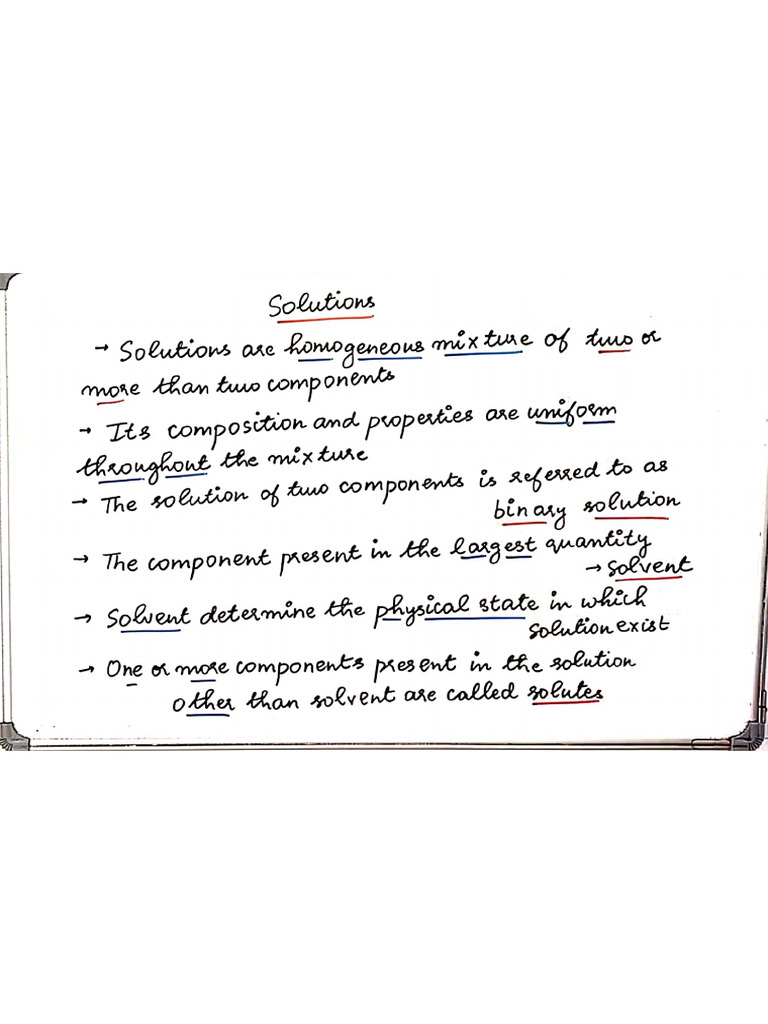 Solutions
→ Solutions are homogeneous mixture of two or
more than two components
→ Its composition and properties are uniform
throughout the mixture
→ The solution of two components is referred to as
binary solution
→ The component present in the largest quantity
→ solvent
→ Solvent determine the physical state in which
solution exist
→ One or more components present in the solution
other than solvent are called solutes